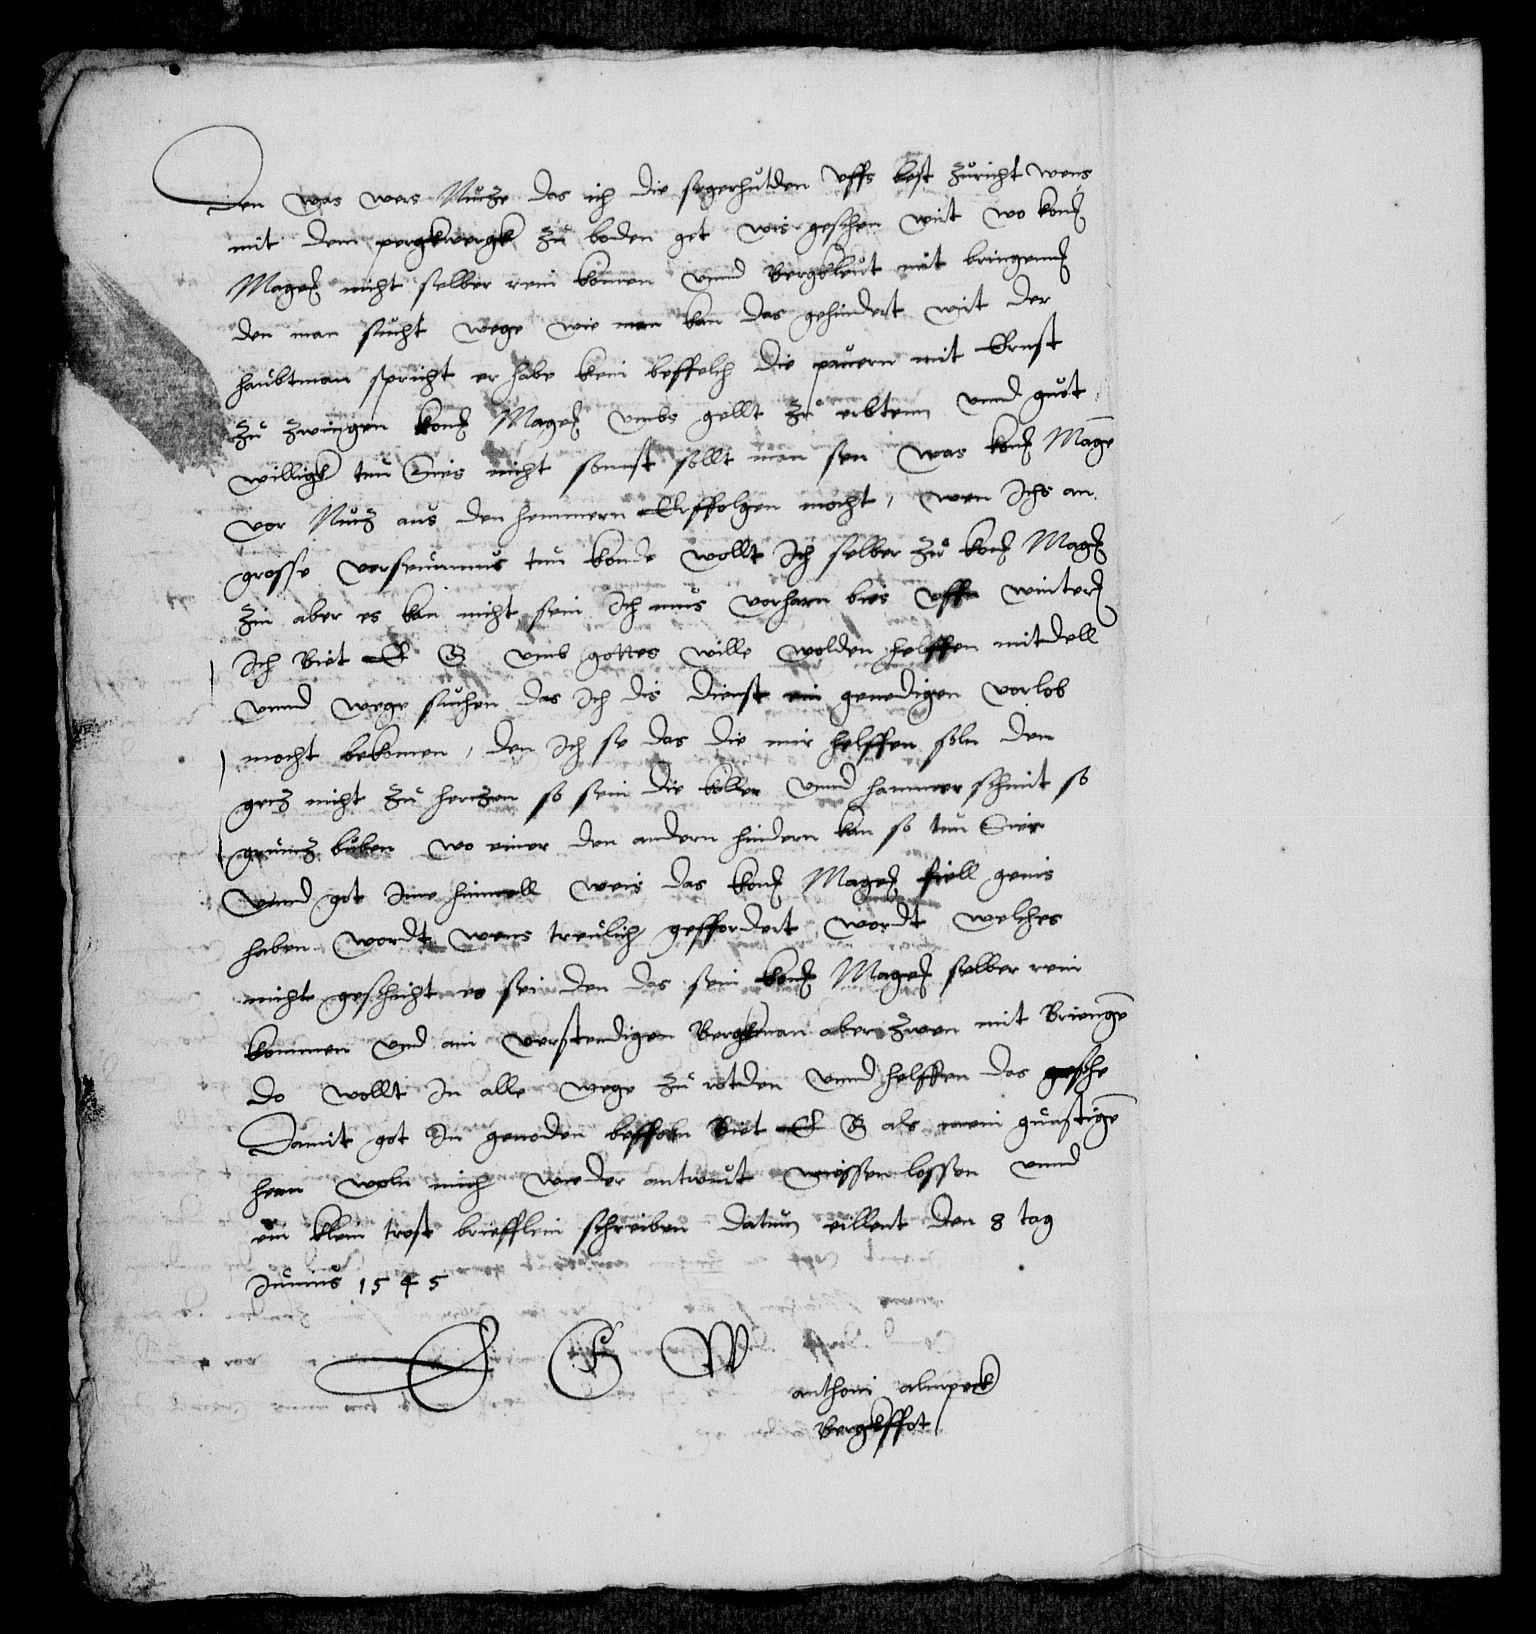 Den was wers Nucze das ich die segerhutden uffs best zuricht wens
mit dem pergkwergk zu boden get wis geschen wirt wo kon
Magen nicht selber rein komen unnd Bergkleut mit bringenn
den man sucht wege wie man kan das gehindert wirt der
haubtman spricht er habe kein beffelch die pauern mit Ernst
zu zwingen kon Magen umbs gellt zu erbtenn unnd gut
willigk tun Sies nicht sonnst sollt man sen was kon Mage
vor Nucz aus den hemmern Erffolgen mocht, wen Ichs an
grosse verseummus tun konde wollt Ich selber zu kon Mage
zin aber es kan nicht sein Ich mus vorharn bis uff winter
Ich Biet E G umb gottes wille wolden helffen mitdell
unnd wege suchen das Ich dis dienst ein genedigen vorlob
mocht bekomen, den Ich se das die mir helffen soln den
gecz nicht zu herczen so sein die koller unnd hammerschmit so
gruncz buben wo einer den andern hindern kan so tun Sies
unnd got Ime himell weis das kon Magen fiell genis
haben wordt wens treulich geffordert wordt welches
nicht geschicht es sei den das sein kon Magen selber rein
kommen und ein verstendigen Bergkman aber zwen mit Brienge
do wollt In alle wege zu rotden unnd helffen das gesche
Damit got In genoden beffoln Biet E G als mein gunstige
hern woln mich wieder antwurt wiessen lossen unnd
ein klein trost briefflein schreiben datum eillent den 8 tag
Junius 1545
E G W
anthoni almpeck
Bergkffot